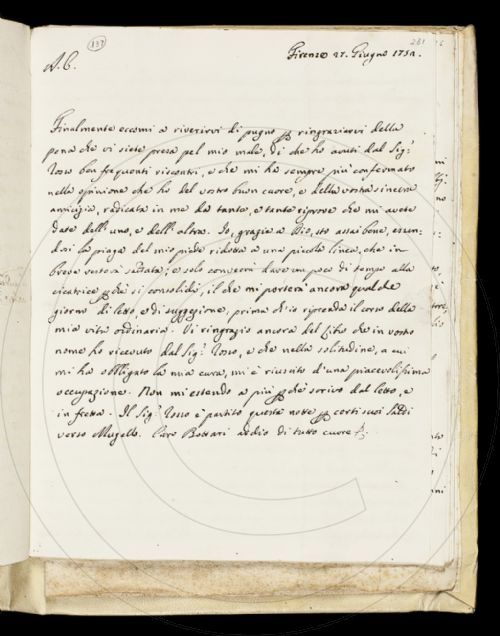 137
281
A. C.
Firenze 27. Giugno 1752.
Finalmente eccomi a riverirvi di pugno p ringraziarvi della
pena che vi siete presa pel mio male, di che ho avuti dal Sig.r
Tosso ben frequenti riscontri, e che mi ha sempre più confermato
nella opinione che ho del vostro buon cuore, e della vostra sincera
amicizia, radicata in me da tante, e tante riprove che mi avete
date dell'uno, e dell'altra. Io, grazie a Dio, sto assai bene, essen-
dosi la piaga del mio piede ridotta a una piccola linea, che in
breve resterà saldata, e solo converrà dare un poco di tempo alla
cicatrice p che si consolidi, il che mi porterà ancora qualche
giorno di letto, e di suggezione, prima ch'io riprenda il corso della
mia vita ordinaria. Vi ringrazio ancora del Libro che in vostro
nome ho ricevuto dal Sig.r Tosso, e che nella solitudine, a cui
mi ha obbligato la mia cura, mi è riuscito d'una piacevolissima
occupazione. Non mi estendo a più p che scrivo dal letto, e
in fretta. Il Sig.r Tosso è partito questa notte p certi suoi
verso Mugello. Caro Bottari addio di tutto cuore